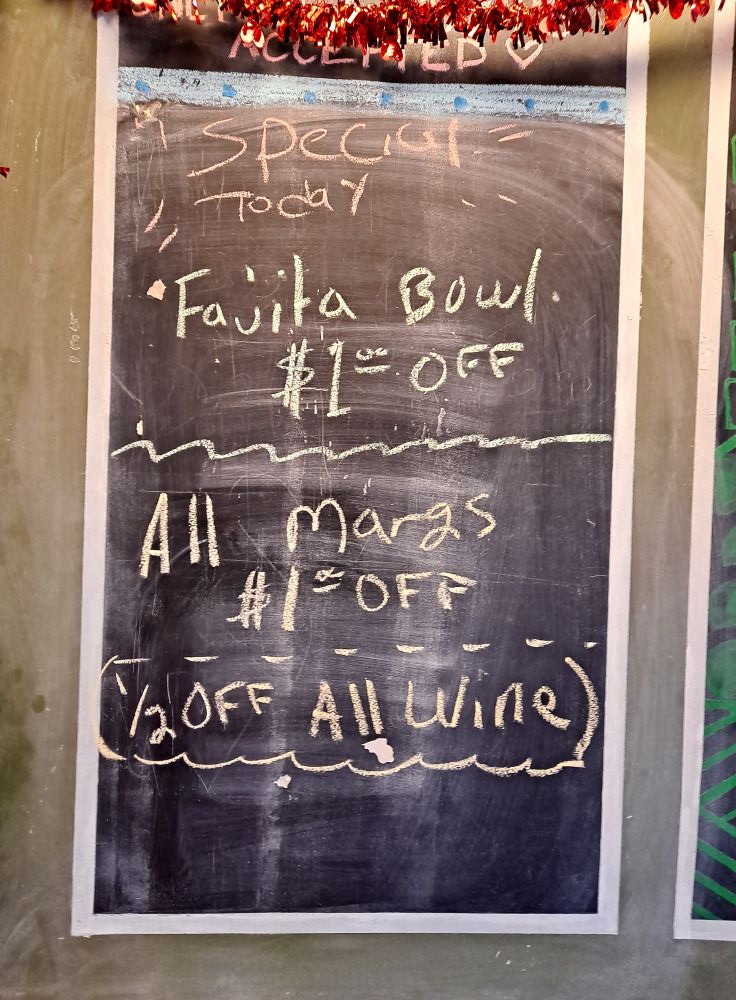 ACCEPTED ♡
Special
Today
Fajita Bowl
$1.00 OFF
All Margs
$1.00 OFF
(1/2 OFF All Wine)